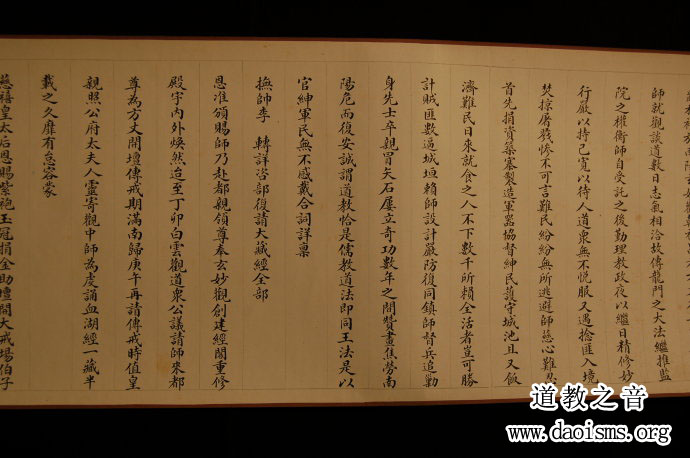 師就觀談道數日志氣相洽故傳龍門之大法繼推監
院之權衡師自受託之後勤理教政夜以繼日精修妙
行嚴以持己寬以待人道衆無不悅服又遇捻匪入境
焚掠屠戮慘不可言難民紛紛無所逃避師慈心難忍
首先捐資築寨製造軍器協督紳民護守城池且又飯
濟難民日來就食之人不下數千所賴全活者豈可勝
計賊匪數逼城垣賴師設計嚴防復同鎮師督兵追勦
身先士卒親冒矢石屢立奇功數年之間贊畫焦勞南
陽危而復安誠謂道教恰是儒教道法即同王法是以
官紳軍民無不感戴合詞詳稟
撫師李 轉詳咨部復請大藏經全部
恩准頒賜師乃赴都親領尊奉玄妙觀創建經閣重修
殿宇內外煥然迨至丁卯白雲觀道衆公議請師來都
尊為方丈開壇傳戒期滿南歸庚午再請傳戒時值皇
親照公府太夫人靈寄觀中師為虔誦血湖經一藏半
載之久靡有怠容蒙
慈禧皇太后恩賜紫袍玉冠捐金助壇開大戒場伯子
道教之音
www.daoisms.org